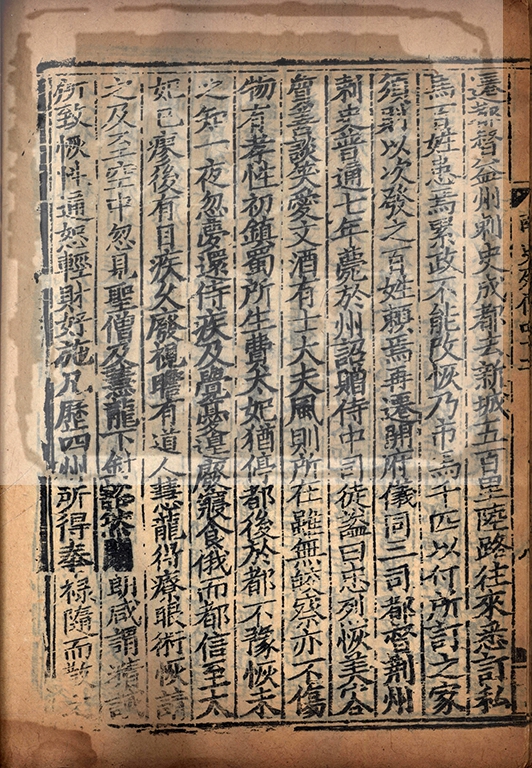 遷都督益州刺史成都去新城五百里陸路往來悉訂私
馬百姓患焉累政不能改恢乃市馬千匹以付所訂之家
須則以次發之百姓賴焉再遷開府儀同三司都督荆州
刺史普通七年薨於州詔贈侍中司徒謚曰忠烈恢美容
質善談笑愛文酒有士大夫風則所在雖無皎察亦不傷
物有孝性初鎮蜀所生費太妃猶停都後於都不豫恢未
之知一夜忽夢還侍疾及覺憂遑廢寢食俄而都信至太
妃已瘳後有目疾久廢視瞻有道人慧龍得療眼術恢請
之及至空中忽見聖僧及慧龍下針豁然開朗咸謂精誠
所致恢性通恕輕財好施凡歷四州所得奉祿隨而散之